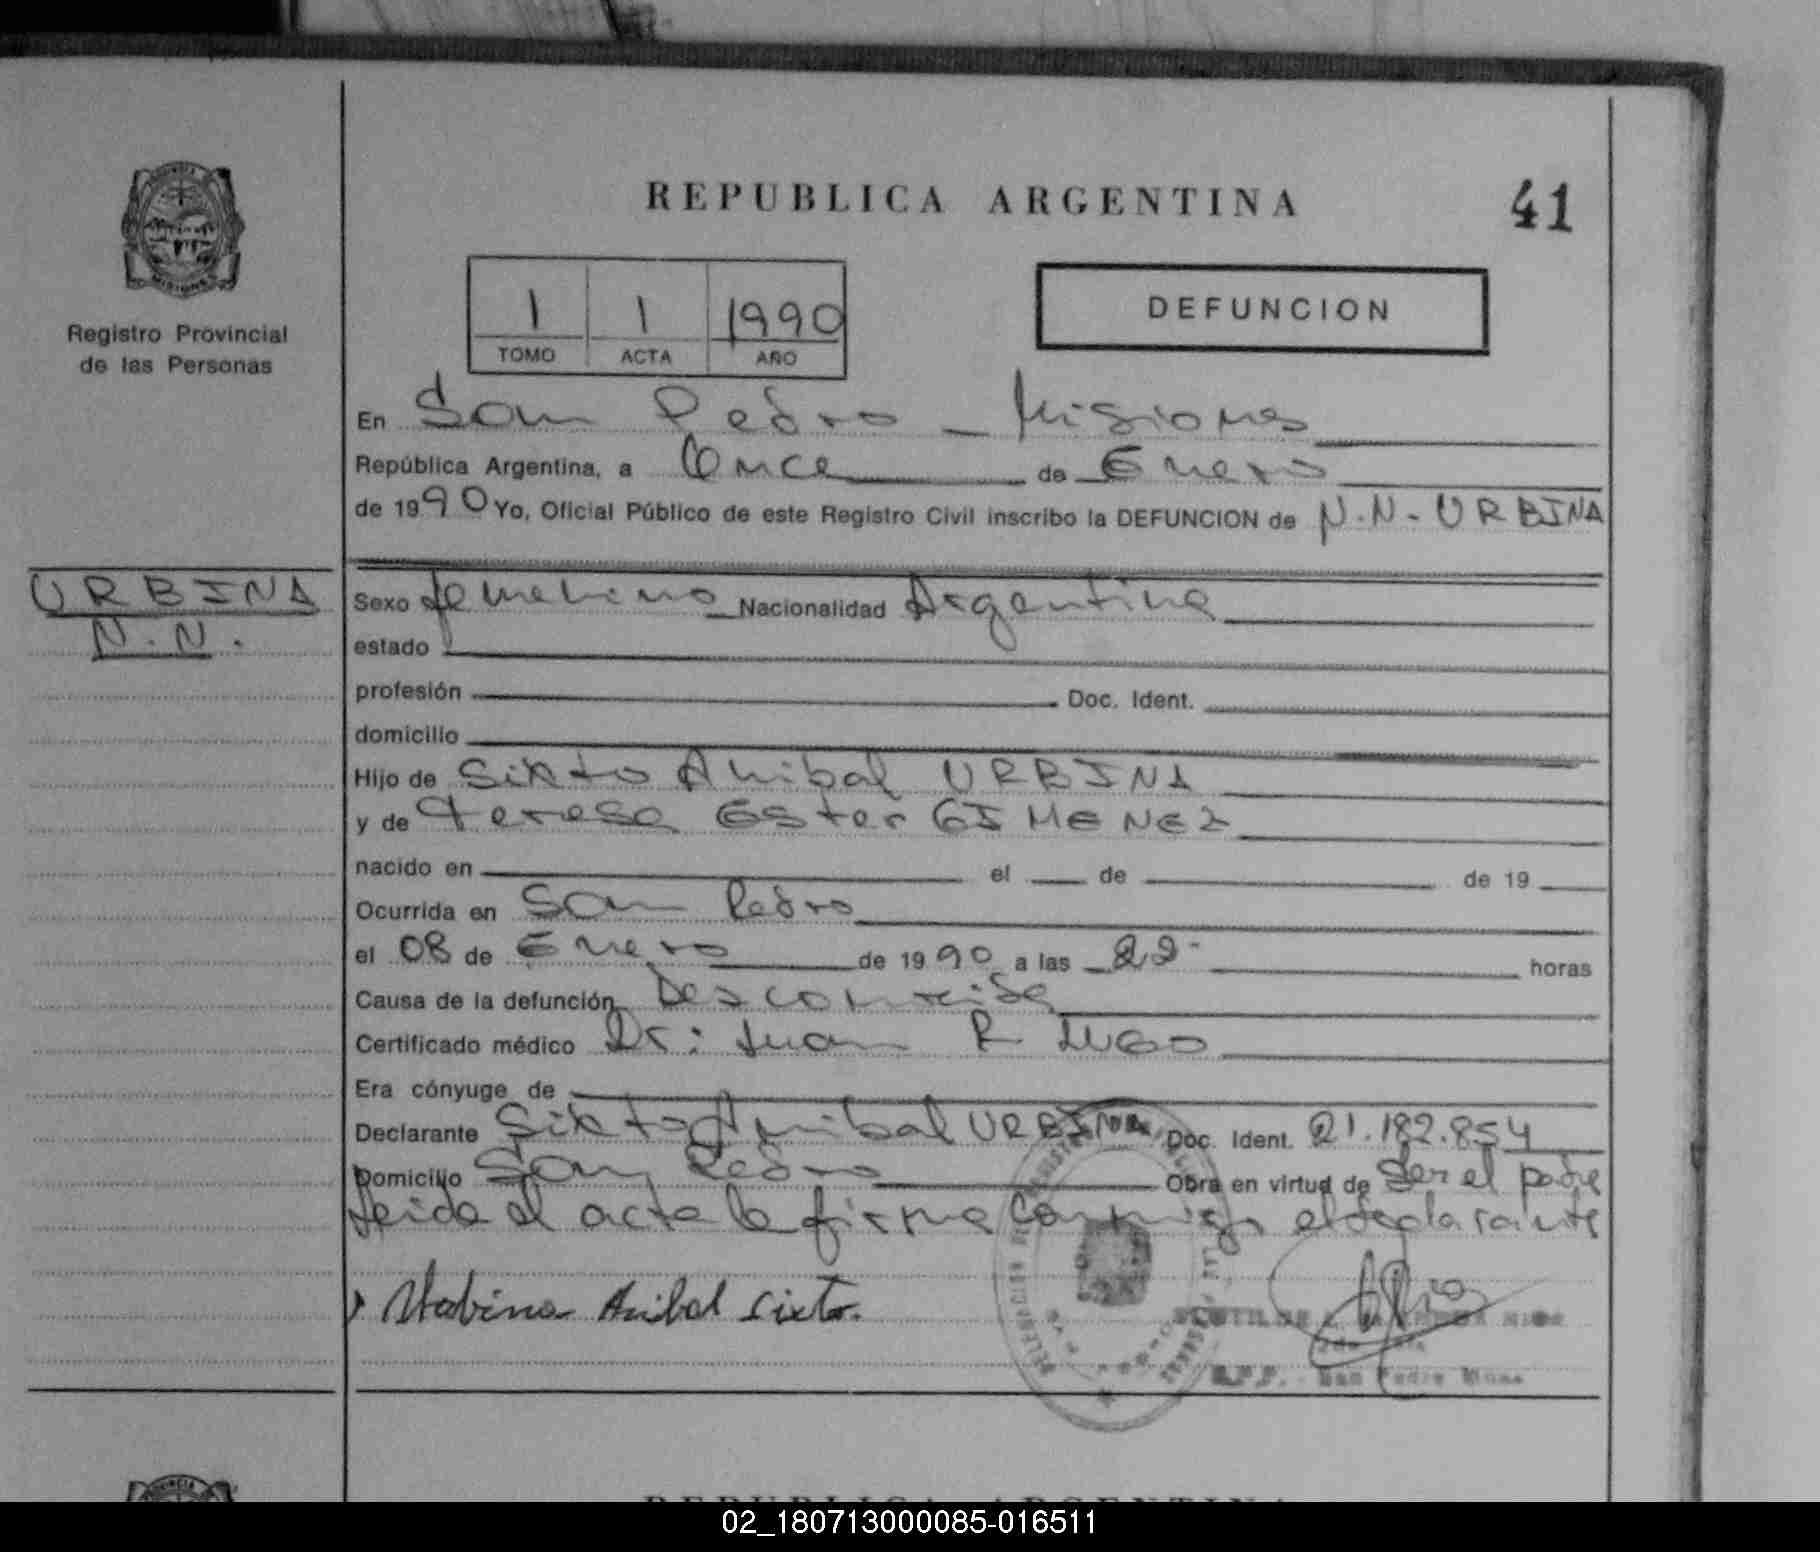 REPUBLICA ARGENTINA
41
PROVINCIA
MISIONES
Registro Provincial
de las Personas
1 1 1990
TOMO ACTA AÑO
DEFUNCION
En San Pedro - Misiones
República Argentina, a Once de Enero
de 1990 Yo, Oficial Público de este Registro Civil inscribo la DEFUNCION de N.N. - URBINA
URBINA
N.N.
Sexo femenino Nacionalidad Argentina
estado
profesión Doc. Ident.
domicilio
Hijo de Sixto Anibal URBINA
y de teresa Ester GIMENEZ
nacido en el de de 19
Ocurrida en San Pedro
el 08 de Enero de 1990 a las 22- horas
Causa de la defunción Desconocida
Certificado médico Dr: Juan R LUGO
Era cónyuge de
Declarante Sixto Anibal URBINA Doc. Ident. 21.182.854
Domicilio San Pedro Obra en virtud de Ser el padre
Leida el acta la firma conmigo el declarante
Urbina Anibal Sixto.
San Pedro
REPUBLICA ARGENTINA
02_180713000085-016511